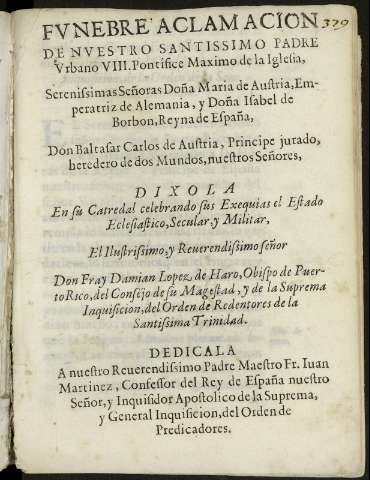 FVNEBRE ACLAMACION 379
DE NVESTRO SANTISSIMO PADRE
Vrbano VIII. Pontifice Maximo de la Iglesia,
Serenissimas Señoras Doña Maria de Austria, Em-
peratriz de Alemania, y Doña Isabel de
Borbon, Reyna de España,
Don Baltasar Carlos de Austria, Principe jurado,
heredero de dos Mundos, nuestros Señores,
DIXOLA
En su Catredal celebrando sus Exequias el Estado
Eclesiastico, Secular, y Militar,
El Ilustrissimo, y Reuerendissimo señor
Don Fray Damian Lopez de Haro, Obispo de Puer-
to Rico, del Consejo de su Magestad, y de la Suprema
Inquisicion, del Orden de Redentores de la
Santissima Trinidad.
DEDICALA
A nuestro Reuerendissimo Padre Maestro Fr. Iuan
Martinez, Confessor del Rey de España nuestro
Señor, y Inquisidor Apostolico de la Suprema,
y General Inquisicion, del Orden de
Predicadores.